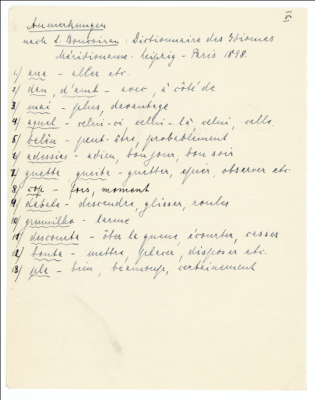 II
Anmerkungen
nach L. Boucoiran: Dictionnaire des Idiomes
Méridionaux. Leipzig - Paris 1898.
1/ ana - aller etc.
2/ dau, d'amt - avec, à côté de
3/ mai - plus, davantage
4/ aquel - celui-ci celui-là celui, celle
5/ belèu - peut-être, probablement
6/ adessias - adieu, bonjour, bon soir
7/ guetta, gueita - guetter, épier, observer etc.
8/ cop - fois, moment
9/ - descendre, glisser, rouler
10/ - larme
11/ descouata - ôter la queue, écourter, casser
12/ bouta - mettre, placer, disposer etc.
13/ pla - bien, beaucoup, certainement